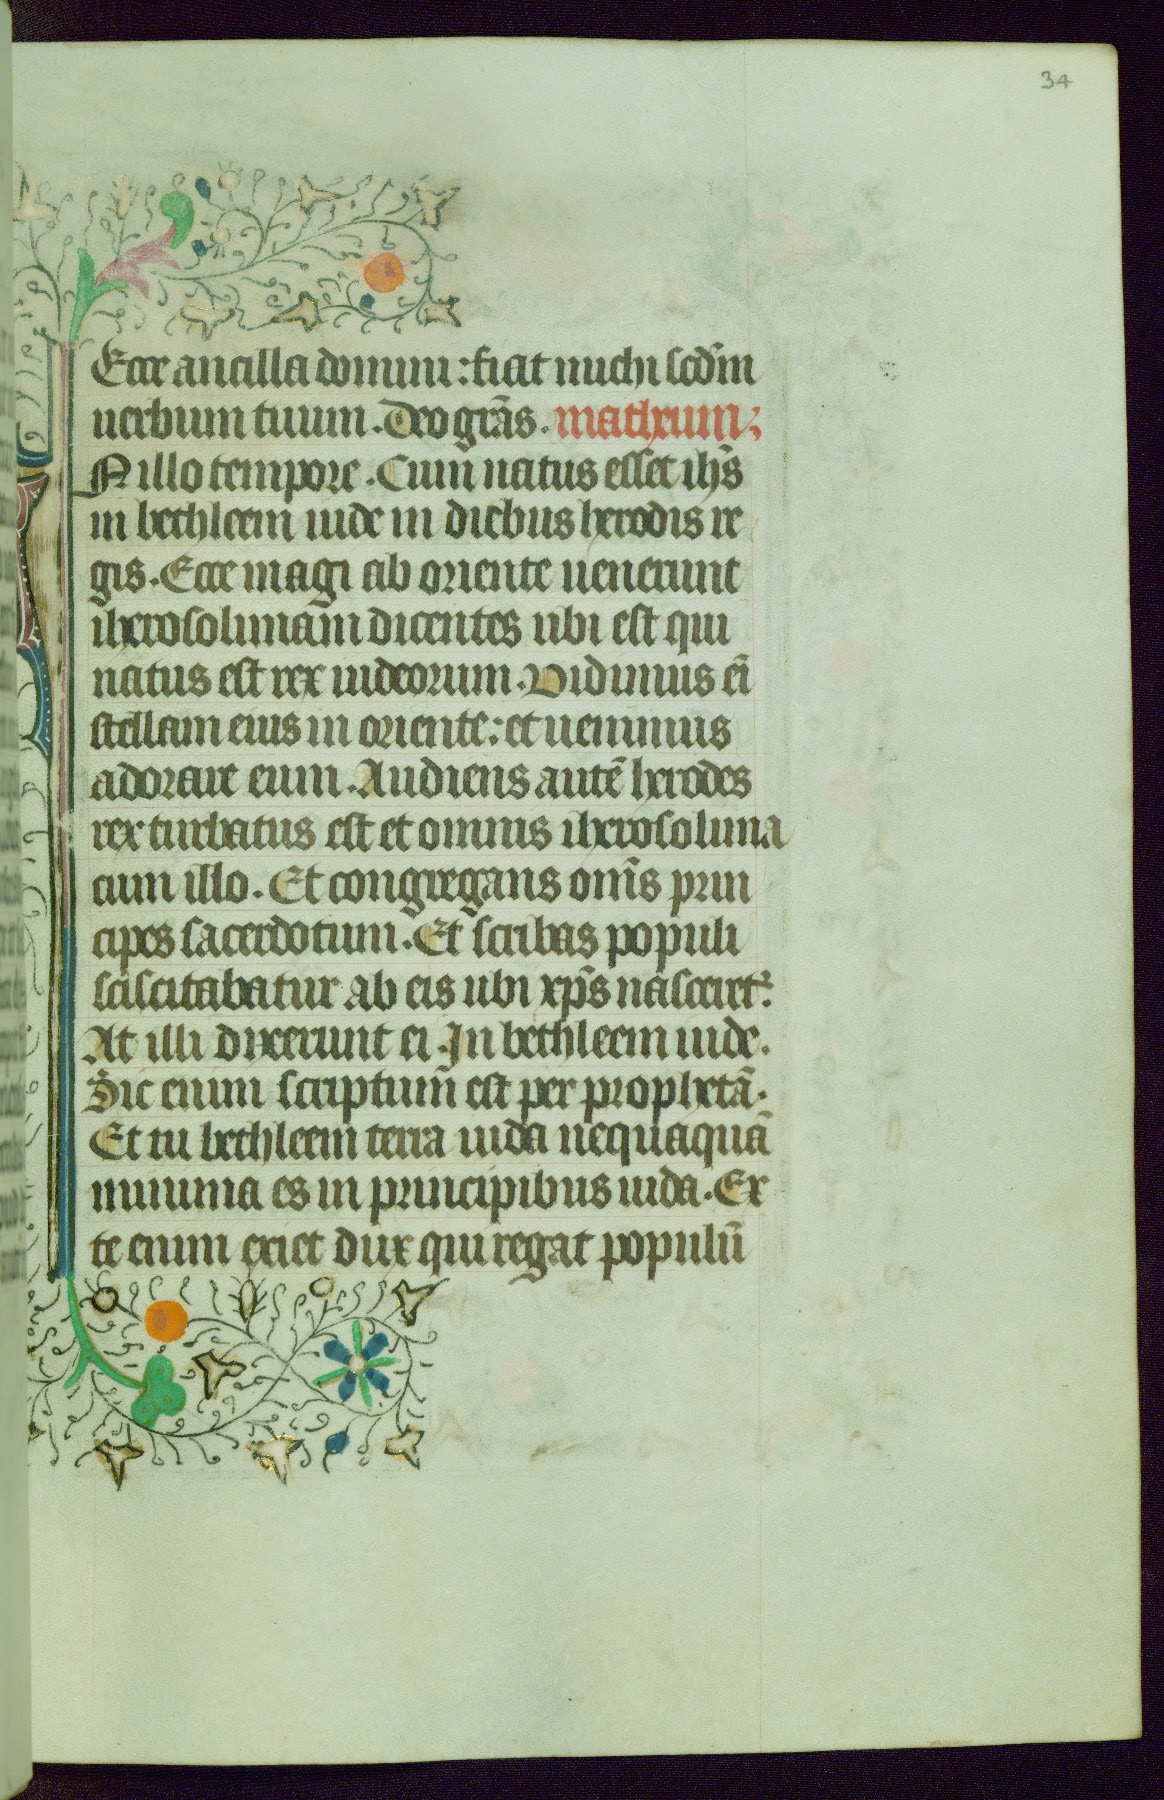 34
Ecce ancilla domini: fiat michi scd̄m
uerbum tuum. Deo grās. matheum;
N illo tempore. Cum natus esset ihs̄
in bethleem iude in diebus herodis re
gis. Ecce magi ab oriente uenerunt
iherosolimam dicentes ubi est qui
natus est rex iudeorum. Vidimus ei̅
stellam eius in oriente: et uenimus
adorare eum. Audiens autē herodes
rex turbatus est et omnis iherosolima
cum illo. Et congregans om̄s prin
cipes sacerdotum. Et scribas populi
sciscitabatur ab eis ubi xp̄s nasceret᷑.
At illi dixerunt ei. In bethleem iude.
Sic enim scriptum̄ est per prophetā.
Et tu bethleem terra iuda nequaquā
minima es in principibus iuda. Ex
te enim exiet dux qui regat populū